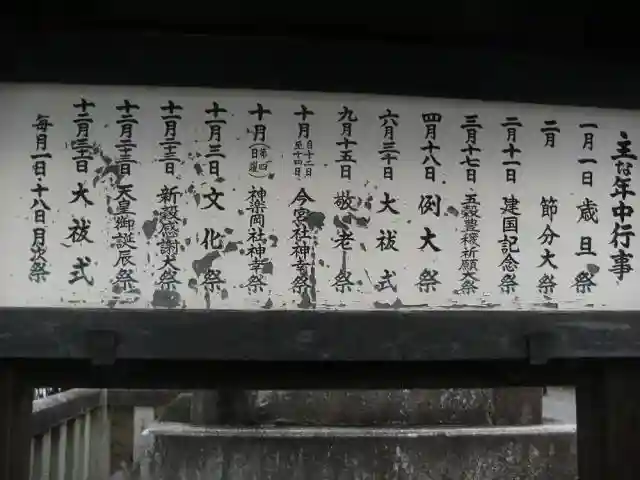 主な年中行事
一月一日 歳旦祭
二月 節分大祭
二月十一日 建国記念祭
三月十七日 五穀豊穣祈願大祭
四月十八日 例大祭
六月三十日 大祓式
九月十五日 敬老祭
十月 自十二日至十四日 今宮社神幸祭
十月(第四日曜) 神楽岡社神幸祭
十一月三日 文化祭
十一月二十三日 新穀感謝大祭
十二月二十三日 天皇御誕辰祭
十二月三十一日 大祓式
毎月一日・十八日 月次祭